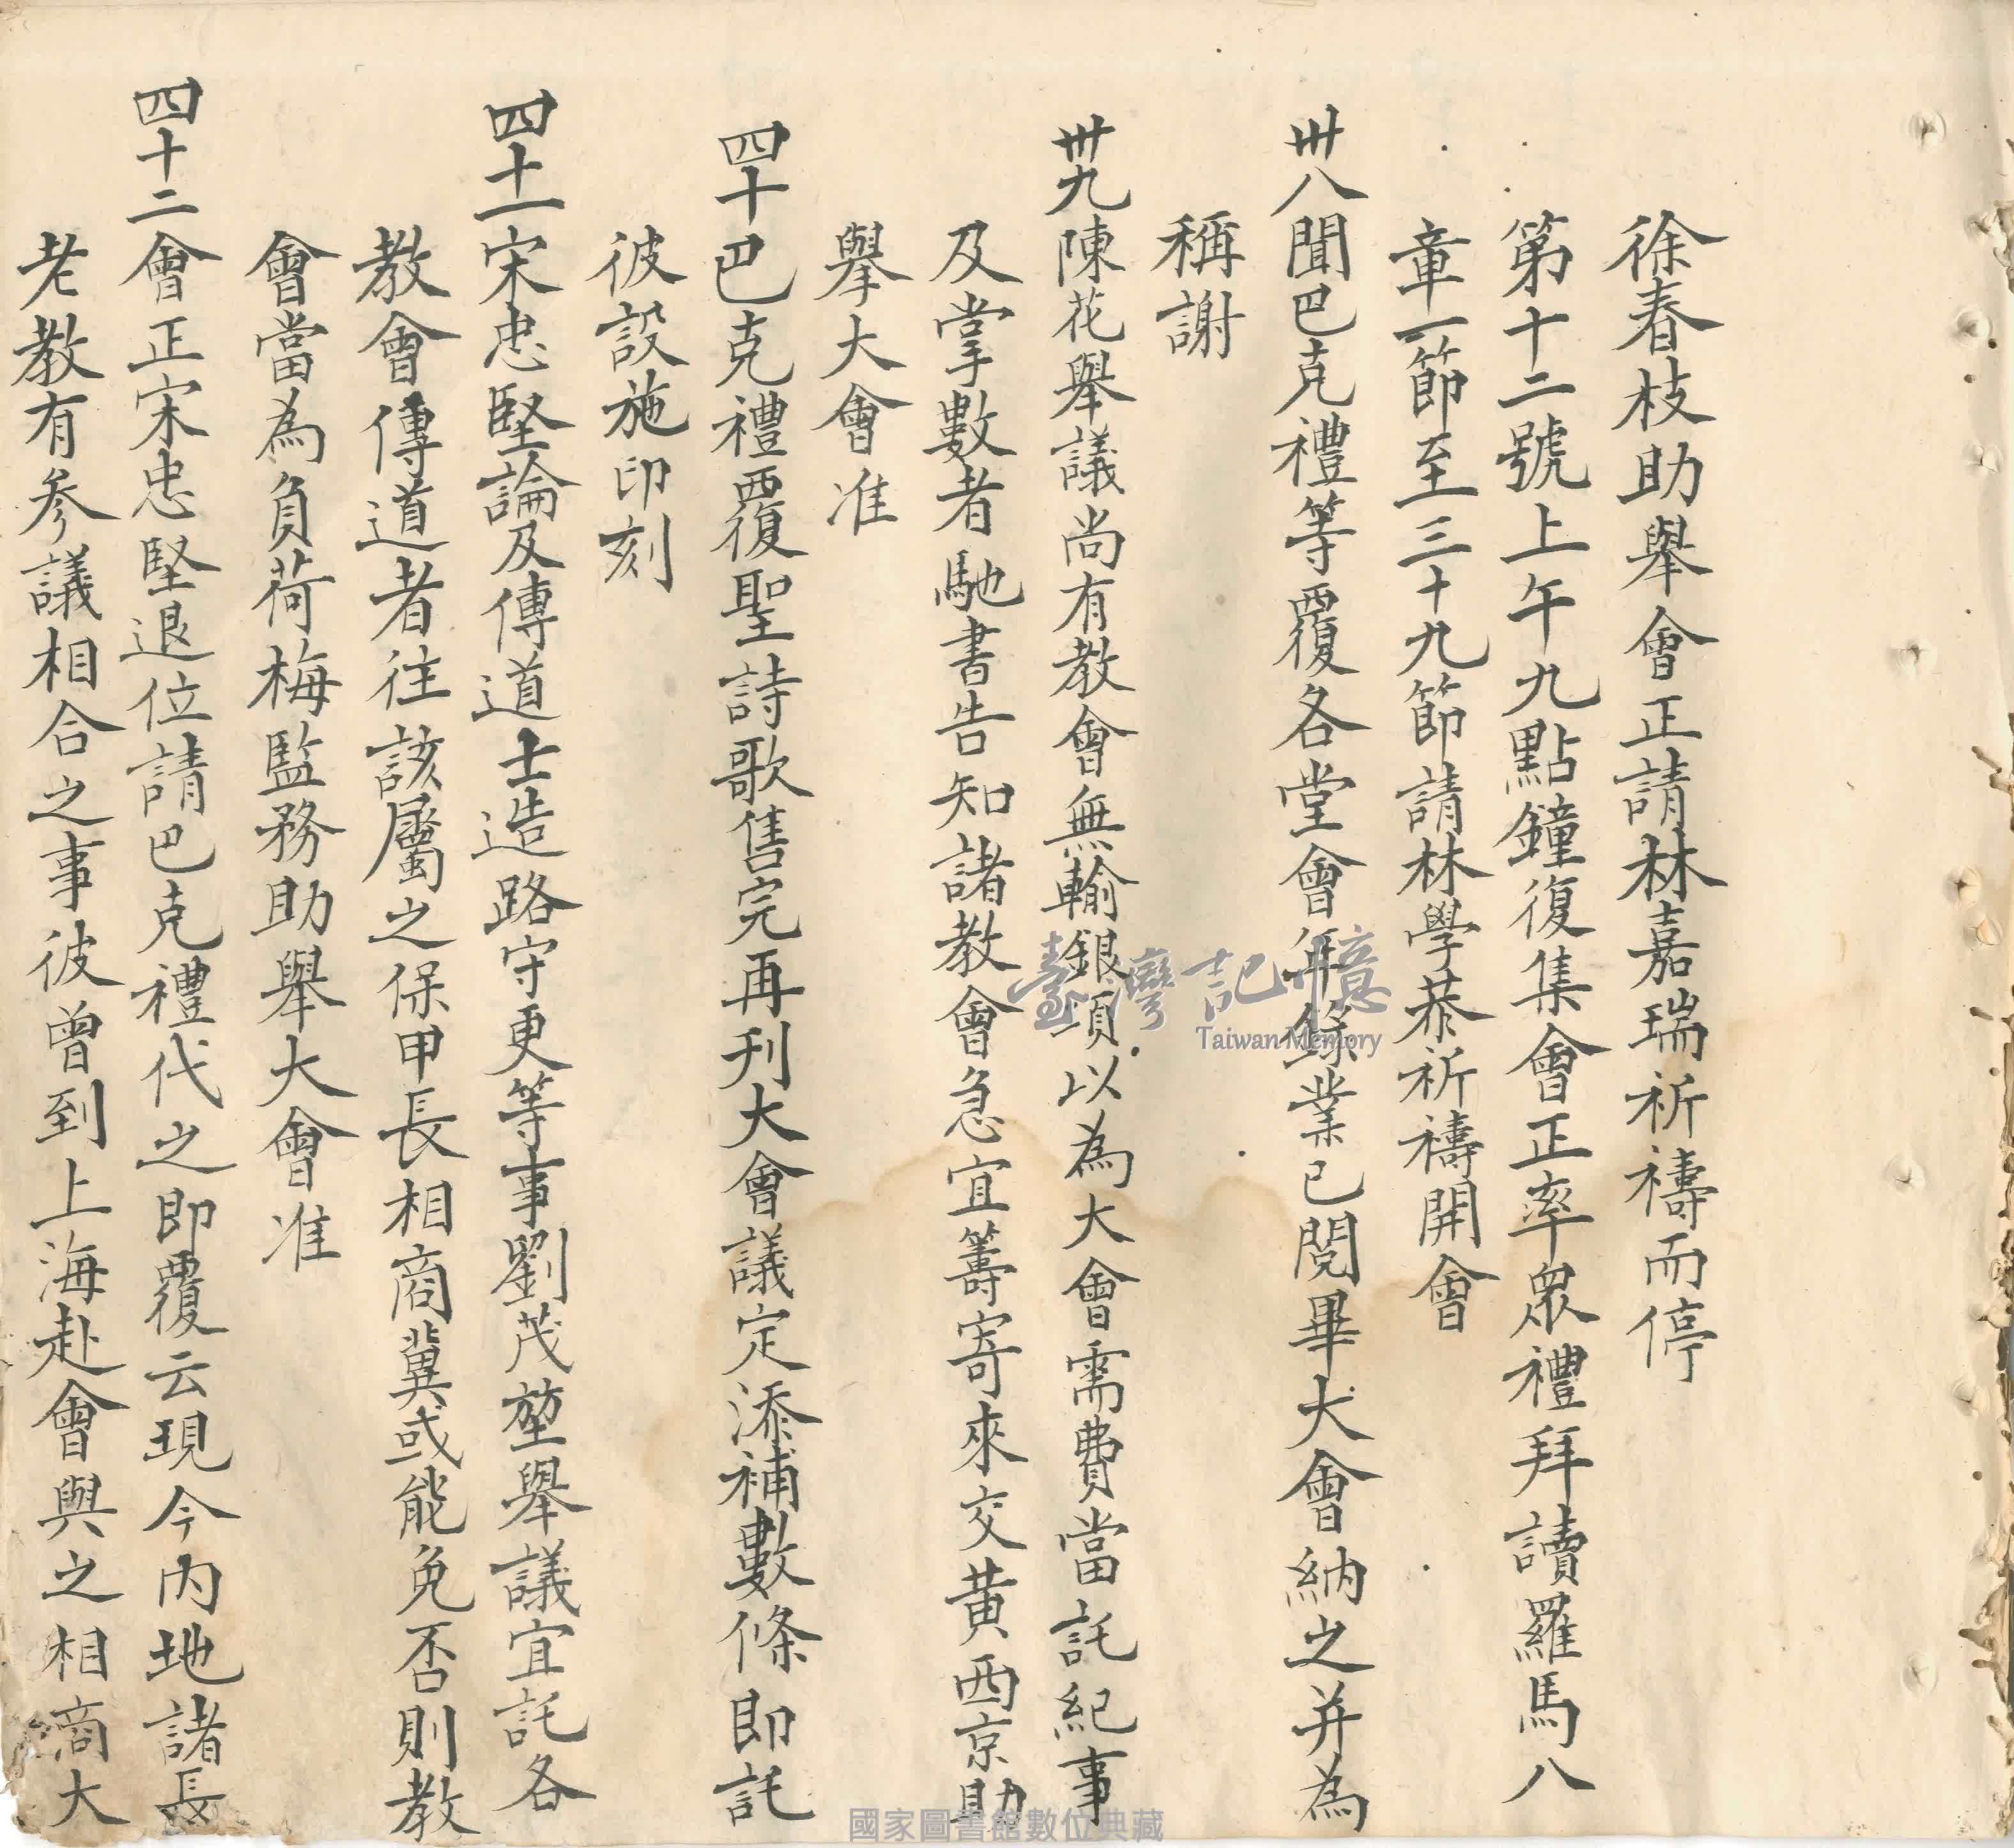 徐春枝助舉會正請林嘉瑞祈禱而停
第十二號上午九點鐘復集會正率眾禮拜讀羅馬八
章一節至三十九節請林學恭祈禱開會
卅八聞巴克禮等覆各堂會冊錄業已閱畢大會納之并為
稱謝
卅九陳花舉議尚有教會無輸銀項以為大會需費當託紀事
及掌數者馳書告知諸教會急宜籌寄來交黄西京助
舉大會准
四十巴克禮覆聖詩歌售完再刊大會議定添補數條即託
彼設施印刻
四十一宋忠堅論及傳道士造路守更等事劉茂堃舉議宜託各
教會傳道者往該屬之保甲長相商冀或能免否則教
會當為負荷梅監務助舉大會准
四十二會正宋忠堅退位請巴克禮代之即覆云現今內地諸長
老教有参議相合之事彼曾到上海赴會與之相商大
臺灣記憶
Taiwan Memory
國家圖書館數位典藏